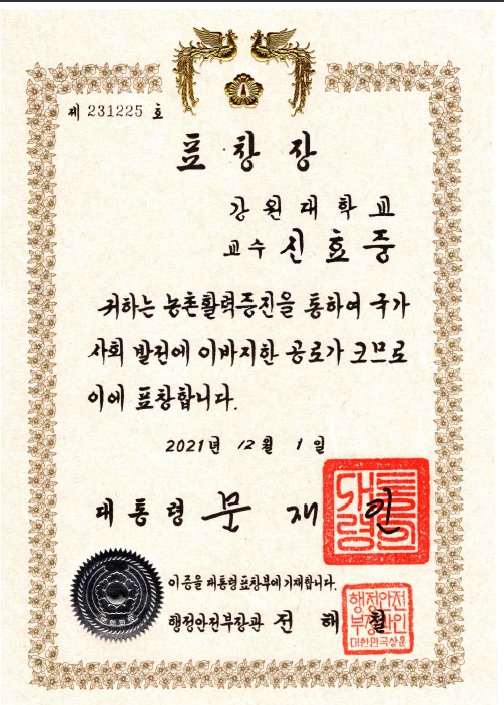 제 231225 호
표창장
강원대학교
교수 신효중
귀하는 농촌활력증진을 통하여 국가
사회 발전에 이바지한 공로가 크므로
이에 표창합니다.
2021년 12월 1일
대통령 문재인
대통령의인
이 증을 대통령표창부에 기재합니다.
행정안전부장관 전해철
행정안전
부장관인
대한민국상훈